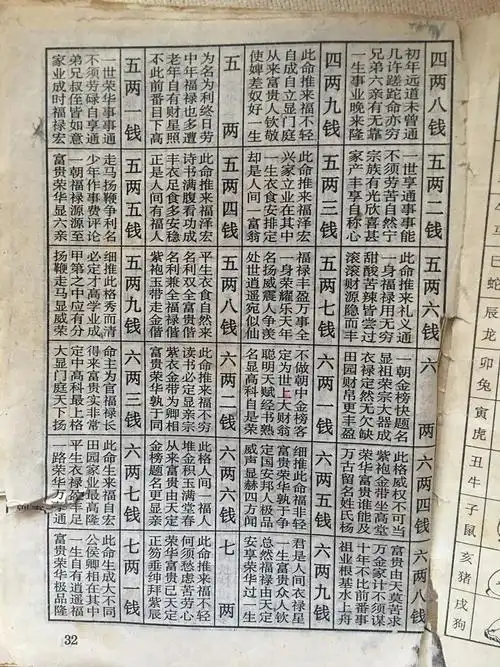 四两八钱
初年远道未曾通
几许蹉跎命亦穷
兄弟六亲有无靠
一生事业晚来隆
四两九钱
此命推来福不轻
自成自立显门庭
从来富贵人钦敬
使婢差奴好一生
五两
为名为利终日劳
中年福禄也多遭
老年自有财星照
不此前番目下高
五两一钱
一世荣华事事通
不须劳碌自享通
弟兄叔侄皆如意
家业成时福禄宏
五两二钱
一世享通事事能
不须劳苦自然宁
宗族有光欣喜甚
家产丰享自称心
五两三钱
此命推来福泽宏
兴家立业在其中
一生衣食安排定
却是人间一富翁
五两四钱
此命推来福泽宏
诗书满腹看功成
丰衣足食多安稳
正是人间有福人
五两五钱
走马扬鞭争利名
少年作事费评论
一朝福禄源源至
富贵荣华显六亲
五两六钱
此命推来礼义通
一身福禄用无穷
甜酸苦辣皆尝过
滚滚财源隐而丰
五两七钱
福禄丰盈万事全
一身荣耀乐天年
名扬威震人争羡
处世逍遥宛似仙
五两八钱
平生衣食自然来
名利双全富贵偕
名利兼全福禄偕
紫袍玉带走金偕
五两九钱
细推此格秀而清
必定才高学业成
甲第之中应有分
扬鞭走马显威荣
六两
一朝金榜快题名
显祖荣宗大器成
衣禄定然无欠缺
田园财帛更丰盈
六两一钱
不做朝中金榜客
定为世上大财翁
聪明天赋经书熟
名显高科自是荣
六两二钱
此命推来福不穷
读书必定显亲宗
紫衣金带为卿相
富贵荣华孰与同
六两三钱
命主为官福禄长
得来富贵实非常
定中高科最上格
大显门庭天下扬
六两四钱
此格威权不可当
紫袍金带坐高堂
荣华富贵谁能及
万古留名姓氏杨
六两五钱
细推此命福非轻
富贵荣华孰于争
定国安邦人极品
威声显赫四方闻
六两六钱
此格人间一福人
堆金积玉满堂春
从来富贵由天定
金榜题名更显亲
六两七钱
此命生来福自宏
田园家业最高隆
平生衣禄盈丰足
一路荣华万事通
六两八钱
富贵由天莫苦求
万金家计不须谋
十年不比前番事
祖业根基水上舟
六两九钱
君是人间衣禄星
一生富贵众人钦
总然福禄由天定
安享荣华过一生
七两
此命推来福不轻
何须愁虑苦劳心
荣华富贵已天定
正笏垂绅拜紫辰
七两一钱
此命生成大不同
公侯卿相在其中
一生自有逍遥福
富贵荣华极品隆
32
马
巳蛇
辰龙
卯兔
寅虎
丑牛
子鼠
亥猪
戌狗